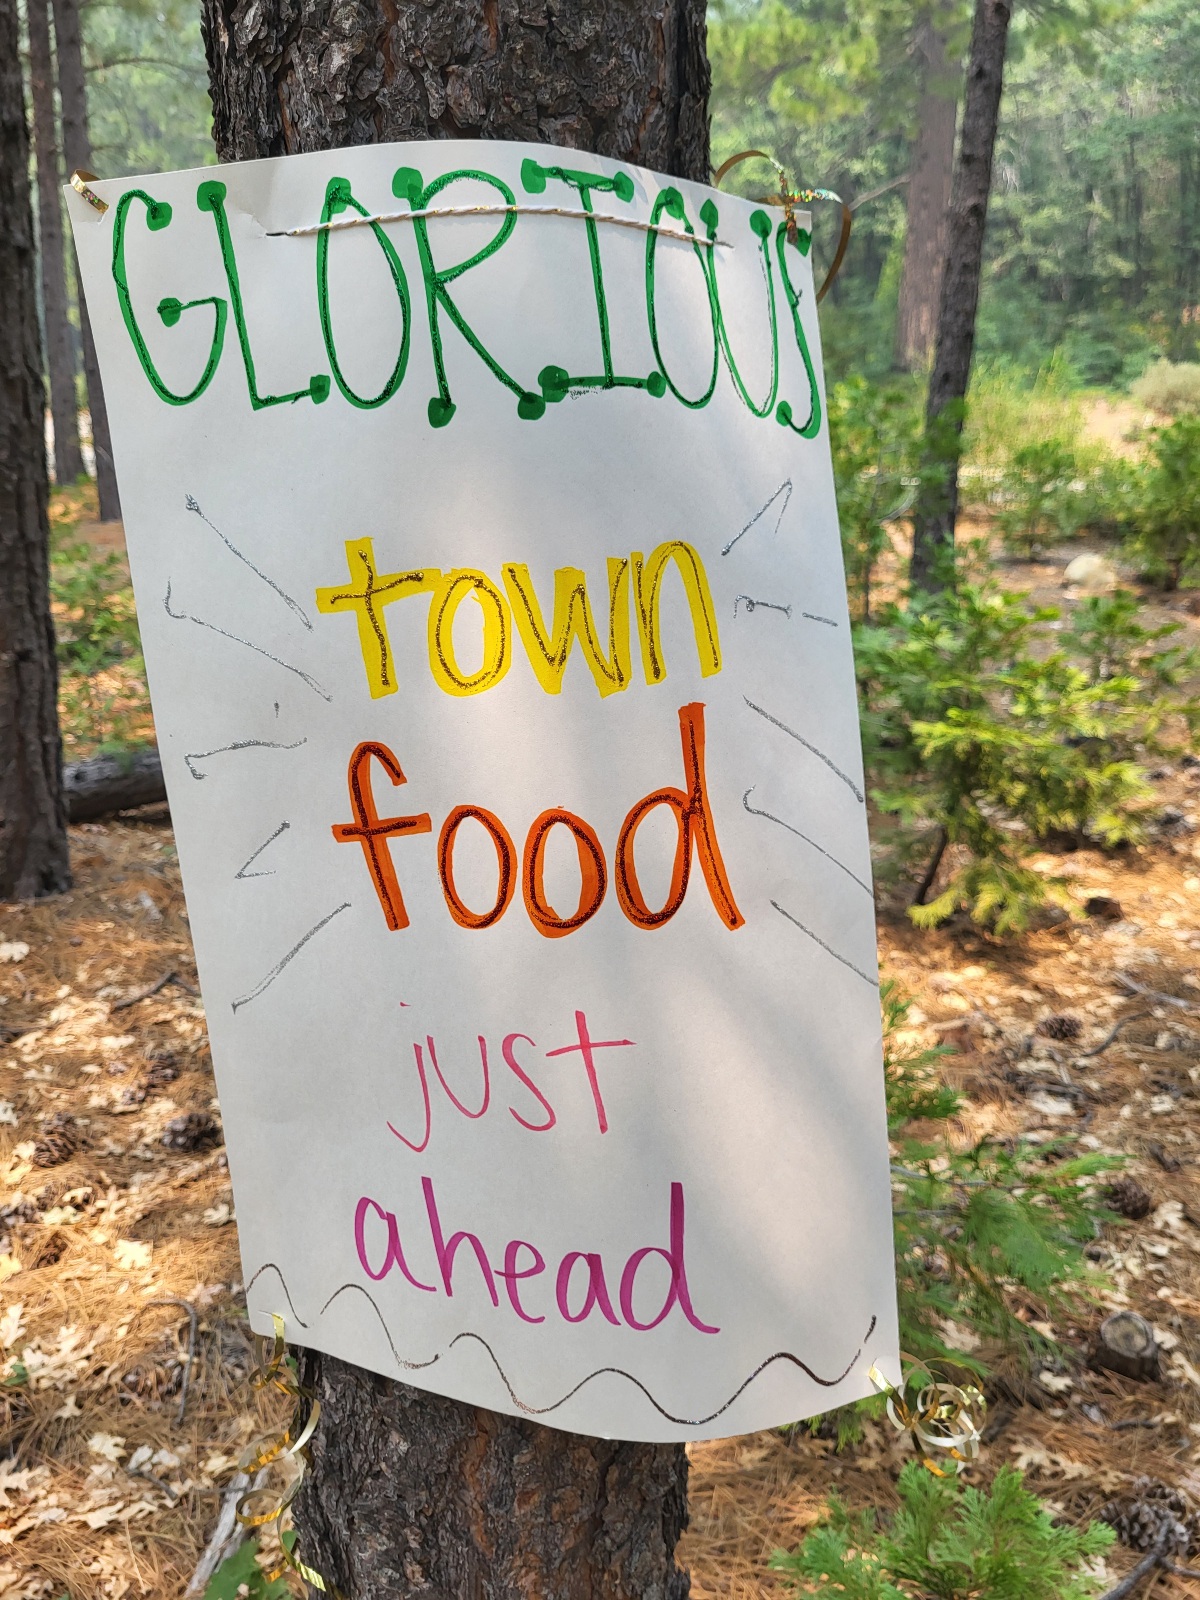 GLORIOUS
town
food
just
ahead